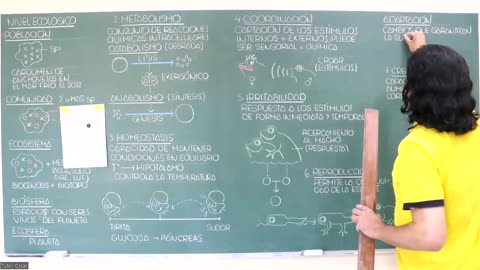 NIVEL ECOLÓGICO
POBLACIÓN
SP1
CARDUMEN DE
ANCHOVETAS EN
EL MAR FRÍO EL 2022
COMUNIDAD: 2 a MÁS SP
ECOSISTEMA
BIOGENOSIS + BIOTOPO
BIÓSFERA
ESPACIOS CON SERES
VIVOS DEL PLANETA
ECÓSFERA
PLANETA
2. METABOLISMO
CONJUNTO DE REACCIONES
QUÍMICAS INTRACELULARES
CATABOLISMO (DEGRADA)
LISIS
EXERGÓNICO
ANABOLISMO (SÍNTESIS)
GÉNESIS
3. HOMEOSTASIS
CAPACIDAD DE MANTENER
CONDICIONES EN EQUILIBRIO
T° → HIPOTÁLAMO
CONTROLA LA TEMPERATURA
TIRITA
SUDOR
GLUCOSA → PÁNCREAS
4. COORDINACIÓN
CAPTACIÓN DE LOS ESTÍMULOS
INTERNOS o EXTERNOS, PUEDE
SER SENSORIAL o QUÍMICA
CROAR
(ESTÍMULOS)
5. IRRITABILIDAD
RESPUESTA A LOS ESTÍMULOS
DE FORMA INMEDIATA Y TEMPORAL
ACERCAMIENTO
AL MACHO
(RESPUESTA)
6. REPRODUCCIÓN
PERMITE LA
ADAPTACIÓN
CAMBIOS QUE GARANTIZAN
LA S